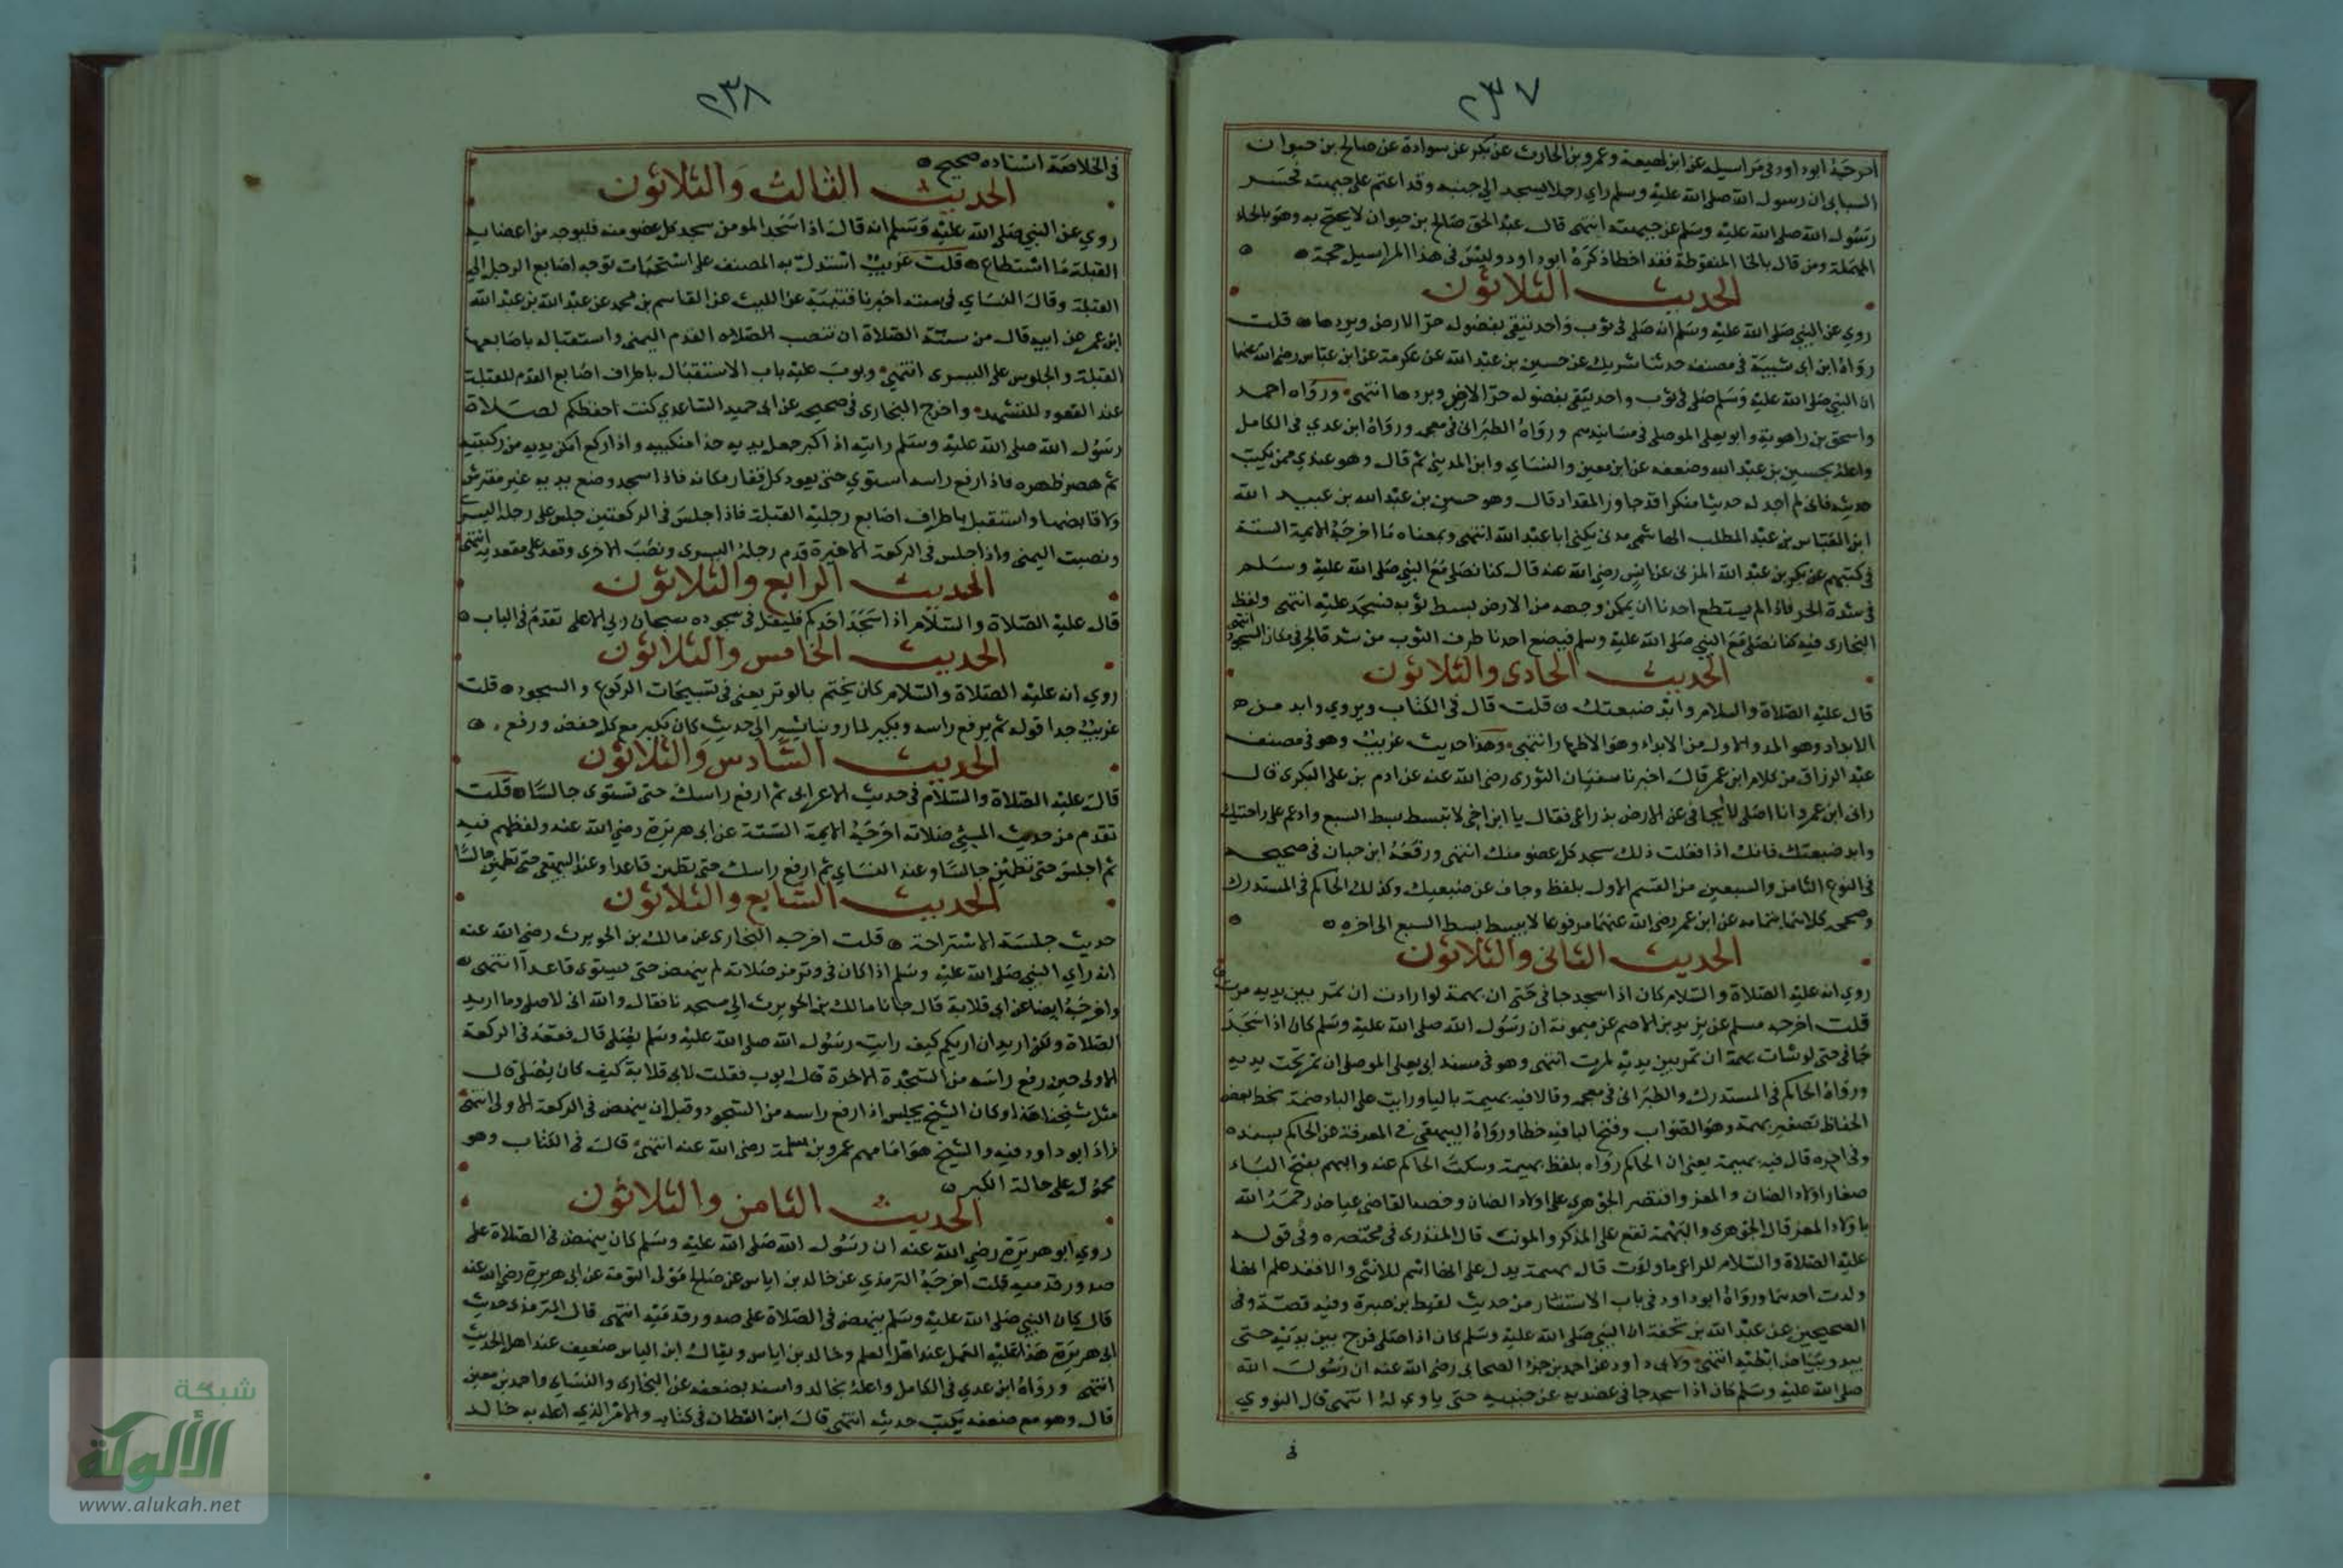 ٢٣٧
اخرجه ابو داود في مراسيله عن ابن لهيعة وعمرو بن الحارث عن بكر عن سوادة عن صالح بن حيوان
السباي ان رسول الله صلى الله عليه وسلم راي رجلا يسجد الي جنبه وقد اعتم على جبهته فحسر
رسول الله صلى الله عليه وسلم عن جبهته انتهى قال عبد الحق صالح بن حيوان لا يحتج به وهو بالحاء
المهملة ومن قال بالخا المنقوطة فقد اخطا ذكره ابو داود وليس في هذا المراسيل حجة
الحديث الثلاثون
روي عن النبي صلى الله عليه وسلم انه صلى في ثوب واحد يتقي بفضوله حر الارض وبردها قلت
رواه ابن ابي شيبة في مصنفه حدثنا شريك عن حسين بن عبد الله عن عكرمة عن ابن عباس رضي الله عنهما
ان النبي صلى الله عليه وسلم صلى في ثوب واحد يتقي بفضوله حر الارض وبردها انتهى ورواه احمد
واسحق بن راهوية وابو يعلى الموصلي في مسانيدهم ورواه الطبراني في معجمه ورواه ابن عدي في الكامل
واعله بحسين بن عبد الله وضعفه عن ابن معين والنساي وابن المديني ثم قال وهو عندي ممن يكتب
حديثه فاني لم اجد له حديثا منكرا قد جاوز المقدار قال وهو حسين بن عبد الله بن عبيد الله
ابن العباس بن عبد المطلب الهاشمي مدني يكنى ابا عبد الله انتهى وبمعناه ما اخرجه الايمة الستة
في كتبهم عن بكر بن عبد الله المزني عن انس رضي الله عنه قال كنا نصلي مع النبي صلى الله عليه وسلم
في شدة الحر فاذا لم يستطع احدنا ان يمكن وجهه من الارض بسط ثوبه فسجد عليه انتهى ولفظ
البخاري فيه كنا نصلي مع النبي صلى الله عليه وسلم فيضع احدنا طرف الثوب من شدة الحر في مكان السجود انتهى
الحديث الحادي والثلاثون
قال عليه الصلاة والسلام وابد ضبعيك قلت قال في الكتاب ويروي وابد من
الابداد وهو المد والاول من الابداء وهو الاظهار انتهى وهذا حديث غريب وهو في مصنف
عبد الرزاق من كلام ابن عمر قال اخبرنا سفيان الثوري رضي الله عنه عن ادم بن علي البكري قال
راني ابن عمر وانا اصلي لا اتجافى عن الارض بذراعي فقال يا ابن اخي لا تبسط بسط السبع وادعم على راحتيك
وابد ضبعيك فانك اذا فعلت ذلك سجد كل عضو منك انتهى ورفعه ابن حبان في صحيحه
في النوع الثامن والسبعين من القسم الاول بلفظ وجاف عن ضبعيك وكذلك الحاكم في المستدرك
وصححه كلاهما بتمامه عن ابن عمر رضي الله عنهما مرفوعا لا يبسط بسط السبع الى اخره
الحديث الثاني والثلاثون
روي انه عليه الصلاة والسلام كان اذا سجد جافى حتى ان بهمة لو ارادت ان تمر بين يديه مرت
قلت اخرجه مسلم عن يزيد بن الاصم عن ميمونة ان رسول الله صلى الله عليه وسلم كان اذا سجد
جافى حتى لو شات بهمة ان تمر بين يديه لمرت انتهى وهو في مسند ابي يعلى الموصلي ان تمر تحت يديه
ورواه الحاكم في المستدرك والطبراني في معجمه وقالا فيه بهيمة باليا ورايت على الباء ضمة بخط بعض
الحفاظ تصغير بهمة وهو الصواب وفتح البا فيه خطا ورواه البيهقي في المعرفة عن الحاكم بسنده
وفي اخره قال فيه بهيمة يعني ان الحاكم رواه بلفظ بهيمة وسكت الحاكم عنه والبهم بفتح الباء
صغار اولاد الضان والمعز واقتصر الجوهري على اولاد الضان وخصه القاضي عياض رحمه الله
باولاد المعز قال الجوهري والبهمة تقع على المذكر والمونث قال المنذري في مختصره وفي قوله
عليه الصلاة والسلام للراعي ما ولدت قال بهمة يدل على انها اسم للانثى والا فقد علم انها
ولدت احدهما ورواه ابو داود في باب الاستنثار من حديث لقيط بن صبرة وفيه قصة وفي
الصحيحين عن عبد الله بن بحينة ان النبي صلى الله عليه وسلم كان اذا صلى فرج بين يديه حتى
يبدو بياض ابطيه انتهى ولابي داود عن احمد بن جزء الصحابي رضي الله عنه ان رسول الله
صلى الله عليه وسلم كان اذا سجد جافى عضديه عن جنبيه حتى ياوي له انتهى قال النووي
في
٢٣٨
في الخلاصة اسناده صحيح
الحديث الثالث والثلاثون
روي عن النبي صلى الله عليه وسلم انه قال اذا سجد المومن سجد كل عضو منه فليوجه من اعضايه
القبلة ما استطاع قلت غريب استدل به المصنف على استحباب توجيه اصابع الرجل الي
القبلة وقال النساي في سننه اخبرنا قتيبة عن الليث عن القاسم بن محمد عن عبد الله بن عبد الله
ابن عمر عن ابيه قال من سنة الصلاة ان تنصب الصلاه القدم اليمني واستقباله باصابعها
القبلة والجلوس على اليسرى انتهى وبوب عليه باب الاستقبال باطراف اصابع القدم للقبلة
عند القعود للتشهد واخرج البخاري في صحيحه عن ابي حميد الساعدي كنت احفظكم لصلاة
رسول الله صلى الله عليه وسلم رايته اذا كبر جعل يديه حذا منكبيه واذا ركع امكن يديه من ركبتيه
ثم هصر ظهره فاذا رفع راسه استوي حتى يعود كل فقار مكانه فاذا سجد وضع يديه غير مفترش
ولا قابضهما واستقبل باطراف اصابع رجليه القبلة فاذا جلس في الركعتين جلس على رجله اليسرى
ونصبت اليمنى واذا جلس في الركعة الاخيرة قدم رجله اليسرى ونصب الاخري وقعد على مقعدته انتهى
الحديث الرابع والثلاثون
قال عليه الصلاة والسلام اذا سجد احدكم فليقل في سجوده سبحان ربي الاعلى تقدم في الباب
الحديث الخامس والثلاثون
روي انه عليه الصلاة والسلام كان يختم بالوتر يعني في تسبيحات الركوع والسجود قلت
غريب جدا قوله ثم يرفع راسه ويكبر لما روينا يشير الي حديث كان يكبر مع كل خفض ورفع
الحديث السادس والثلاثون
قال عليه الصلاة والسلام في حديث الاعرابي ثم ارفع راسك حتى تستوى جالسا قلت
تقدم من حديث المسيء صلاته اخرجه الايمة الستة عن ابي هريرة رضي الله عنه ولفظهم فيه
ثم اجلس حتى تطمئن جالسا وعند النساي ثم ارفع راسك حتى تطمئن قاعدا وعند البيهقي حتى تطمئن جالسا
الحديث السابع والثلاثون
حديث جلسة الاستراحة قلت اخرجه البخاري عن مالك بن الحويرث رضي الله عنه
انه راي النبي صلى الله عليه وسلم اذا كان في وتر من صلاته لم ينهض حتى يستوى قاعدا انتهى
واخرجه ايضا عن ابي قلابة قال جانا مالك بن الحويرث الي مسجدنا فقال والله اني لاصلي وما اريد
الصلاة ولكن اريد ان اريكم كيف رايت رسول الله صلى الله عليه وسلم يصلى قال فقعد في الركعة
الاولى حين رفع راسه من السجدة الاخرة قال ايوب فقلت لابي قلابة كيف كان يصلى قال
مثل شيخنا هذا وكان الشيخ يجلس اذا رفع راسه من السجود وقبل ان ينهض في الركعة الاولى انتهى
زاد ابو داود فيه والشيخ هو امامهم عمرو بن سلمة رضي الله عنه انتهى قال في الكتاب وهو
محمول على حالة الكبر
الحديث الثامن والثلاثون
روي ابو هريرة رضي الله عنه ان رسول الله صلى الله عليه وسلم كان ينهض في الصلاة على
صدور قدميه قلت اخرجه الترمذي عن خالد بن اياس عن صالح مولى التومة عن ابي هريرة رضي الله عنه
قال كان النبي صلى الله عليه وسلم ينهض في الصلاة على صدور قدميه انتهى قال الترمذي حديث
ابي هريرة هذا عليه العمل عند اهل العلم وخالد بن اياس ويقال ابن الياس ضعيف عند اهل الحديث
انتهى ورواه ابن عدي في الكامل واعله بخالد واسند بضعفه عن البخاري والنساي واحمد بن معين
قال وهو مع ضعفه يكتب حديثه انتهى قال ابن القطان في كتابه والامر الذي اعله به خالد
شبكة
الألوكة
www.alukah.net